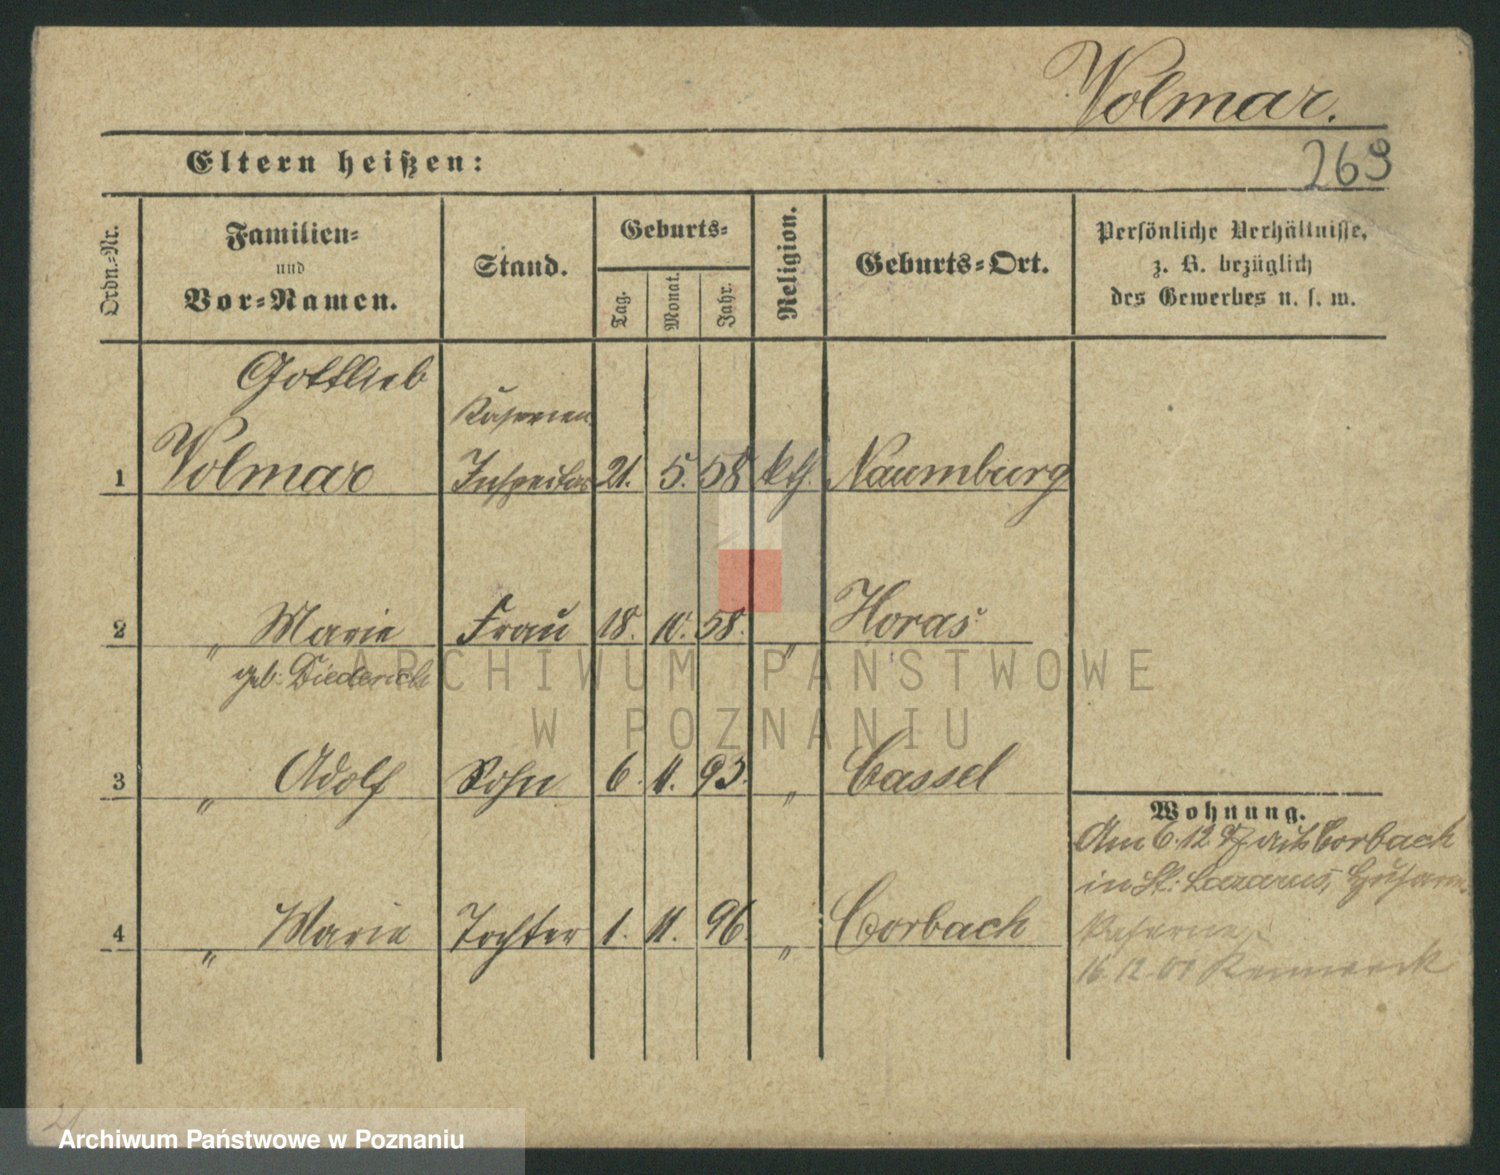 Volmar.
Eltern heißen:
269
Ordn.-Nr.
Familien-
und
Vor-Namen.
Stand.
Geburts-
Tag.
Monat.
Jahr.
Religion.
Geburts-Ort.
Persönliche Verhältnisse,
z. B. bezüglich
des Gewerbes u. s. w.
Gottlieb
Kasernen
1 Volmar Inspektor 21. 5. 58 kth. Naumburg
2 " Marie Frau 18. 10. 58. " Horas
geb. Diederich
3 " Adolf Sohn 6. 11. 93. " Cassel
Wohnung.
Am 6.12. aus Corbach
in St. Lazarus, Husaren
4 " Marie Tochter 1. 11. 96. " Corbach
Kaserne
16.12.
ARCHIWUM PAŃSTWOWE
W POZNANIU
Archiwum Państwowe w Poznaniu